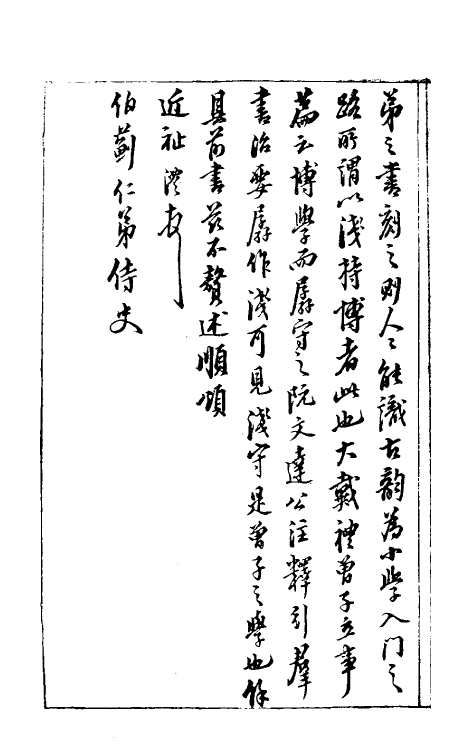 弟之書刻之則人人能識古韵為小學入门之
路所謂以淺持博者此也大戴禮曾子立事
篇云博學而孱守之阮文達公注釋引羣
書治要孱作淺可見淺守是曾子之學也餘
具前書茲不贅述順頌
近祉澧頓
伯薊仁弟侍史